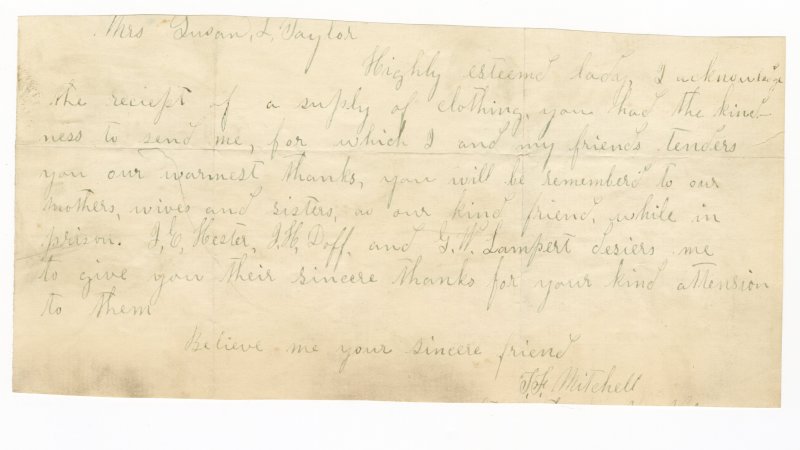 Mrs Susan, L, Taylor
Highly esteemd lady, I acknowledge
the reciept of a supply of clothing, you had the kind-
ness to send me, for which I and my friends tenders
you our warmest thanks, you will be rememberd to our
mothers, wives and sisters, as our kind friend, while in
prison. J, E, Hester, J, H, Doff, and G. W. Lampert desiers me
to give you their sincere thanks for your kind attension
to them
Believe me your sincere friend
Mitchell